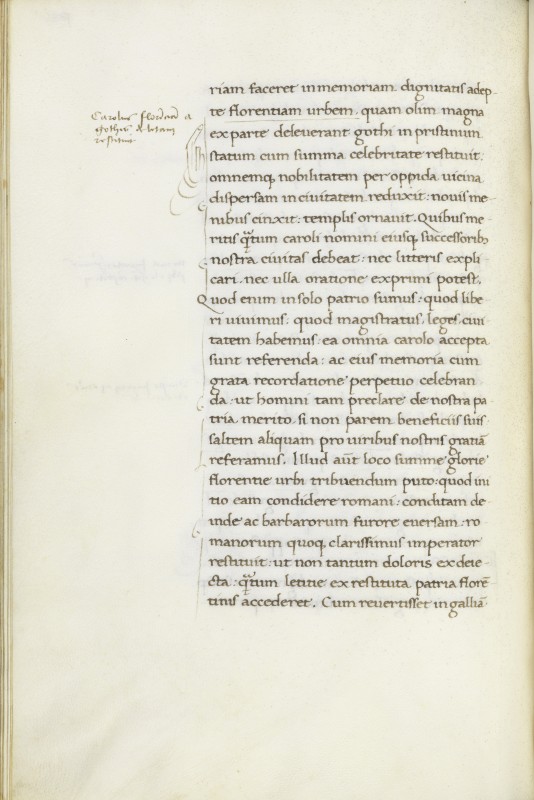 Carolus florētiā a
gothis deletam
restituit
riam faceret in memoriam dignitatis adep-
te florentiam urbem. quam olim magna
ex parte deleuerant gothi in pristinum
statum cum summa celebritate restituit:
omnemq; nobilitatem per oppida uicina
dispersam in ciuitatem reduxit: nouis me-
nibus cinxit: templis ornauit. Quibus me-
ritis q̄tum caroli nomini eiusq; successorib;
nostra ciuitas debeat: nec litteris expli
cari: nec ulla oratione exprimi potest.
Quod enim in solo patrio sumus: quod libe
ri uiuimus: quod magistratus, leges, ciui
tatem habemus: ea omnia carolo accepta
sunt referenda: ac eius memoria cum
grata recordatione perpetuo celebran
da: ut homini tam preclare de nostra pa
tria merito si non parem beneficiis suis
saltem aliquam pro uiribus nostris gratiā
referamus. Illud aūt loco summe glorie
florentie urbi tribuendum puto: quod ini
tio eam condidere romani: conditam de-
inde ac barbarorum furore euersam: ro
manorum quoq; clarissimus imperator
restituit: ut non tantum doloris ex deie
cta: q̄tum letitie ex restituta patria florē
tinis accederet. Cum reuertisset in galliā